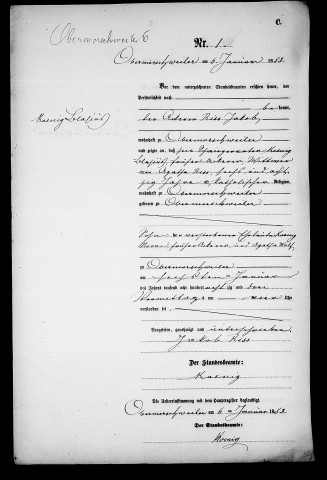 C.
Obermorschweiler C
Nr. 1
Obermorschweiler am 6. Januar 1883.
Vor dem unterzeichneten Standesbeamten erschien heute, der
Persönlichkeit nach
be kannt,
der Ackerer Riss Jakob,
Koenig Blasius
wohnhaft Obermorschweiler
und zeigte an, daß
Blasius, früher Ackerer, Wittwer
von Agatha Riss, sechs und acht-
zig Jahre a, katholischer Religion,
wohnhaft zu Obermorschweiler
geboren zu Obermorschweiler
Sohn der verstorbenen Eheleute Koenig
früher Ackerer, und Agatha
zu Obermorschweiler
am sechsten Januar
des Jahres tausend acht hundert achtzig und drei
Vormittags um Uhr
verstorben sei
Vorgelesen, genehmigt und unterschrieben
Jakob Riss
Der Standesbeamte:
Koenig
Die Uebereinstimmung mit dem Hauptregister beglaubigt.
Obermorschweiler am 6 ten Januar 1883.
Der Standesbeamte:
Koenig